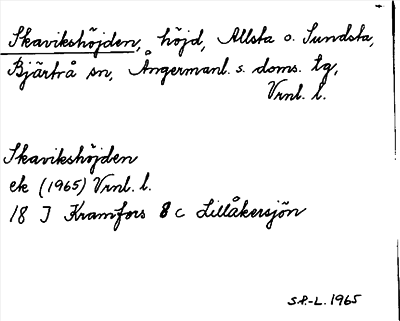 Skavikshöjden, höjd, Allsta o. Sundsta,
Bjärtrå sn, Ångermanl. s. doms. tg,
Vrnl. l.
Skavikshöjden
ek (1965) Vrnl. l.
18 J Kramfors 8 c Lillåkersjön
S.P.-L. 1965